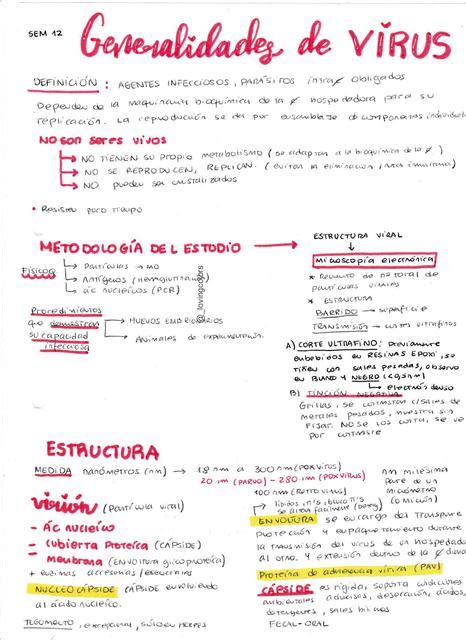 SEM 12
Generalidades de VÍRUS
DEFINICIÓN : AGENTES INFECCIOSOS, PARÁSITOS intra ∅ obligados
Dependen de la maquinaria bioquímica de la ∅ hospedadora para su
replicación. La reproducción se da por ensamblaje de componentes individuales
NO SON SERES VIVOS
NO TIENEN SU PROPIO metabolismo (se adaptan a la bioquímica de la ∅)
NO SE REPRODUCEN, REPLICAN. (evitan la eliminación
NO pueden ser cristalizados
• Resisten poco tiempo
METODOLOGÍA DEL ESTUDIO
Físicos
Partículas → MO
Antígenos (Hemaglutinación)
ác nucleicos (PCR)
Procedimientos
que demuestran
su capacidad
infecciosa
HUEVOS EMBRIONARIOS
Animales de experimentación.
@_lovingcolors
ESTRUCTURA VIRAL
Microscopía electrónica
* Recuento de # total de
partículas virales
* ESTRUCTURA
BARRIDO → superficie
TRANSMISIÓN → cortes ultrafinos
A) CORTE ULTRAFINO: Previamente
embebidos en RESINAS EPOXI, se
tiñen con sales pesadas, observo
en BLANCO Y NEGRO
electrón denso
B) TINCIÓN NEGATIVA
Grillas, se contrastan c/sales de
metales pesados, muestra sin
fijar. No se los corta, se ve
por contraste
ESTRUCTURA
MEDIDA nanómetros (nm) → 18 nm a 300 nm (POXVIRUS)
20 nm (PARVO) - 280 nm (POXVIRUS)
100 nm (RETROVIRUS)
nm milésima
parte de un
micrómetro
(0 micrón)
Virión (Partícula viral)
- Ác nucleico
- Cubierta Proteica (CÁPSIDE)
- Membrana (ENVOLTURA glicoproteica)
+ enzimas accesorias/esenciales
NUCLEOCÁPSIDE CÁPSIDE envolviendo
al ácido nucleico.
TEGUMENTO, excepcional, sólo en HERPES
ENVOLTURA se encarga del transporte
protección y empaquetamiento durante
la transmisión del virus de un hospedador
al otro, y extensión dentro de la ∅
Proteína de adherencia vírica (PAV)
CÁPSIDE es rígida, soporta condiciones
ambientales adversas, desecación, ácidos,
detergentes, sales biliares
FECAL-ORAL